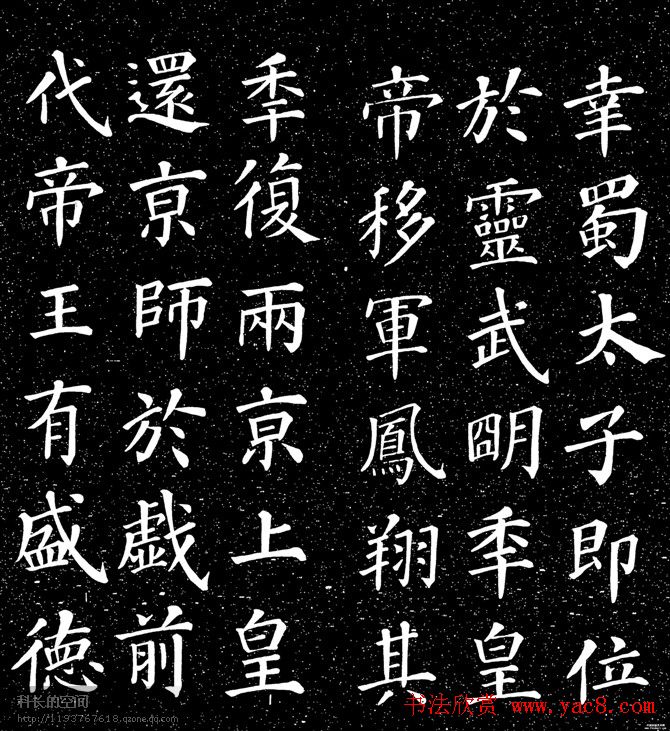 幸蜀太子即位
於靈武明秊皇
帝移軍鳳翔其
秊復兩京上皇
還京師於戱前
代帝王有盛德
科长的空间
http://1193767618.qzone.qq.com
书法欣赏 www.yac8.com